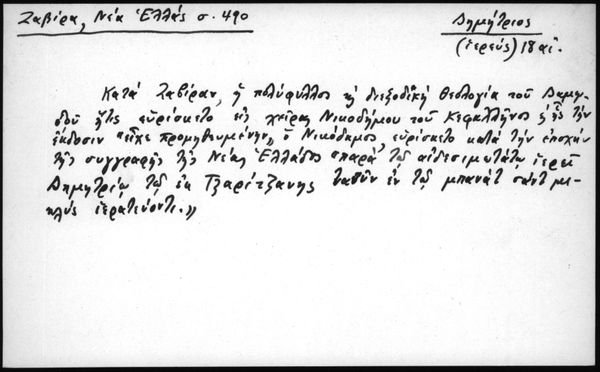 Ζαβίρα, Νέα Ἑλλάς σ. 490
Δημήτριος
(ἱερεύς) 18 αἰ.
Κατά Ζαβίραν, ἡ πολύφυλλος καὶ διεξοδική θεολογία τοῦ Δαμῳ-
δοῦ ἥτις εὑρίσκετο εἰς χεῖρας Νικοδήμου τοῦ Κεφαλλῆνος ἧς τήν
ἔκδοσιν "εἶχε προμηθευμένην", ὁ Νικόδημος, εὑρίσκετο κατά τήν ἐποχήν
τῆς συγγραφῆς τῆς Νέας Ἑλλάδος "παρά τῷ αἰδεσιμωτάτῳ ἱερεῖ
Δημητρίῳ τῷ ἐκ Τζαρίτζανης τανῦν ἐν τῷ μπανάτ σάντ μι-
κλύς ἱερατεύοντι."